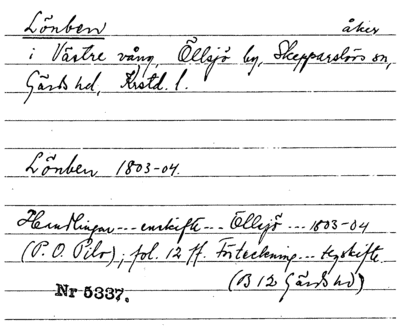 Lönben åker
i Västre vång, Öllsjö by, Skepparslövs sn,
Gärds hd, Krstd. l.
Lönben 1803-04.
Handlingar --- enskifte --- Öllsjö --- 1803-04
(P. O. Pilo); fol. 12 ff. Förteckning --- tegskifte
(B 12 Gärds hd)
Nr 5337.